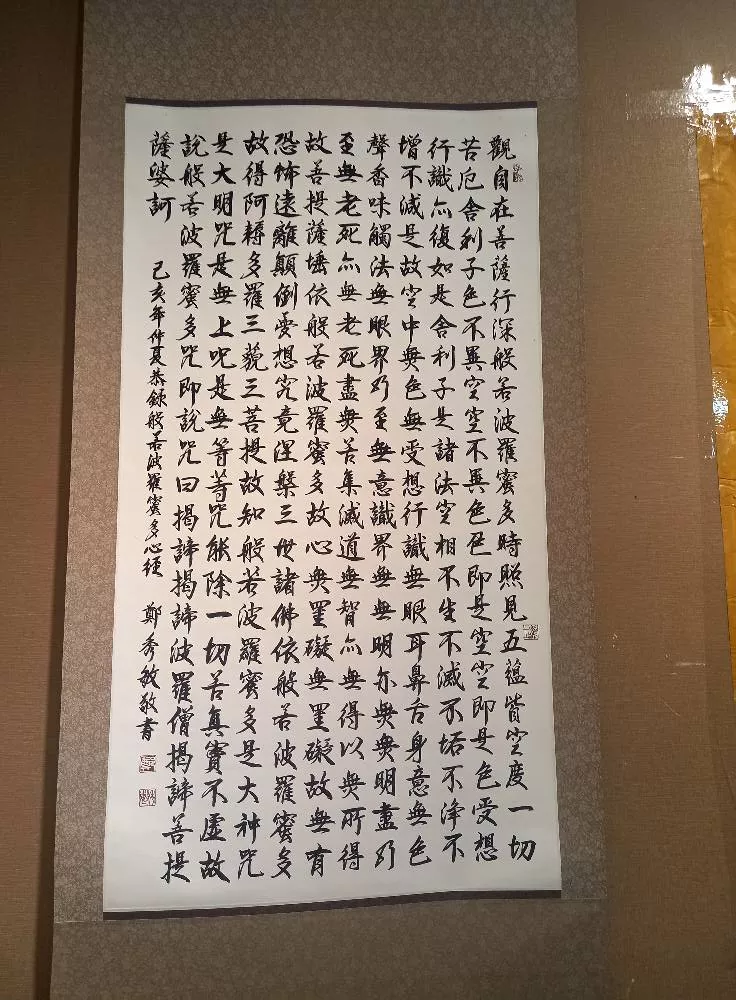 觀自在菩薩行深般若波羅蜜多時照見五蘊皆空度一切
苦厄舍利子色不異空空不異色色即是空空即是色受想
行識亦復如是舍利子是諸法空相不生不滅不垢不淨不
增不減是故空中無色無受想行識無眼耳鼻舌身意無色
聲香味觸法無眼界乃至無意識界無無明亦無無明盡乃
至無老死亦無老死盡無苦集滅道無智亦無得以無所得
故菩提薩埵依般若波羅蜜多故心無罣礙無罣礙故無有
恐怖遠離顛倒憂想究竟涅槃三世諸佛依般若波羅蜜多
故得阿耨多羅三藐三菩提故知般若波羅蜜多是大神咒
是大明咒是無上呪是無等等咒能除一切苦真實不虛故
說般若波羅蜜多咒即說咒曰揭諦揭諦波羅僧揭諦菩提
薩婆訶
己亥年仲夏恭錄般若波羅蜜多心經 鄭秀敏敬書